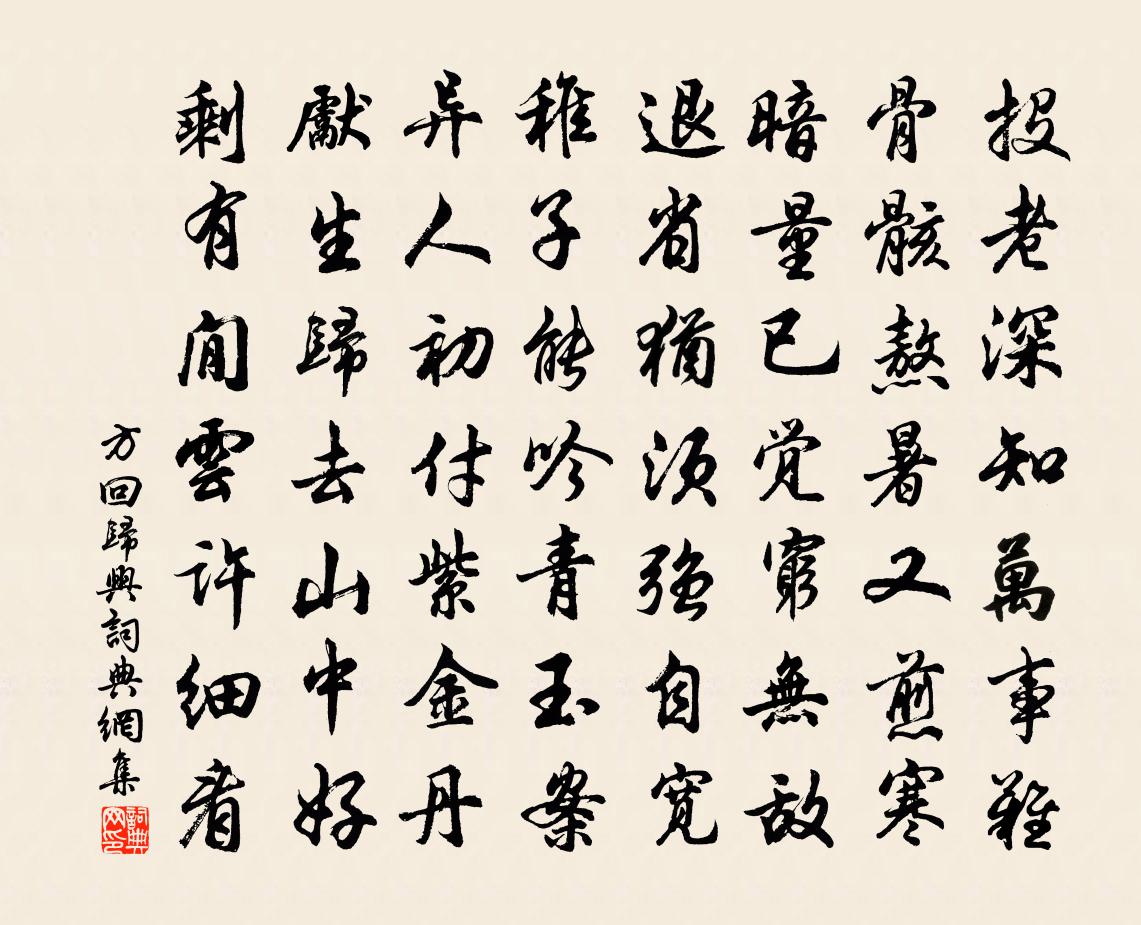 投老深知萬事難
骨骸熬暑又煎寒
暗量已覚窮無敵
退省猶須強自寬
稚子能吟青玉案
异人初付紫金丹
獻生歸去山中好
剩有閒雲許细看
方回歸興詞典網集
詞典网印